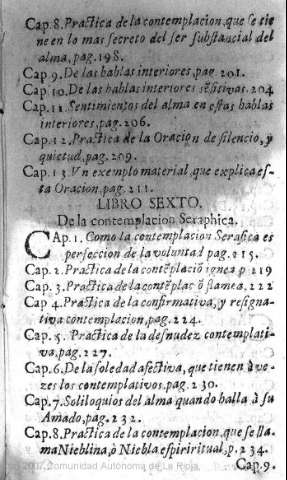 Cap.8. Practica de la contemplacion, que se tie
ne en lo mas secreto del ser substancial del
alma, pag. 198.
Cap. 9. De las hablas interiores, pag. 201.
Cap. 10. De las hablas interiores sẽsitivas. 204
Cap. 11. Sentimientos del alma en estas hablas
interiores, pag. 206.
Cap. 12. Practica de la Oracion de silencio, y
quietud, pag. 209.
Cap. 13. Vn exemplo material, que explica es-
ta Oracion. pag. 211.
LIBRO SEXTO.
De la contemplacion Seraphica.
CAp. 1. Como la contemplacion Serafica es
perfeccion de la voluntad pag. 215.
Cap. 2. Practica de la contẽplaciõ ignea p 219
Cap. 3. Practica de la contẽplac õ flamea. 222
Cap 4. Practica de la confirmativa, y resigna-
tiva contemplacion, pag. 224.
Cap. 5. Practica de la desnudez contemplati-
va, pag. 227.
Cap. 6. De la soledad afectiva, que tienen à ve-
zes los contemplativos, pag. 230.
Cap. 7. Soliloquios del alma quando halla à su
Amado, pag. 232.
Cap. 8. Practica de la contemplacion, que se lla-
ma Nieblina, ò Niebla espiritual, p. 234.
Cap. 9.
© 2007 Comunidad Autónoma de La Rioja